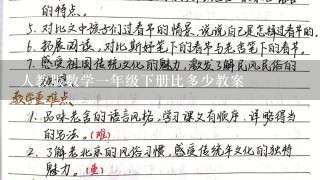 的特点。
5. 对比文中孩子们过春节的情景,说说自己是怎样过春节的。
6. 拓展阅读,对比斯妤笔下的春节与老舍笔下的春节。
7. 感受祖国传统文化的魅力,激发了解民风民俗的
人教版数学一年级下册比多少教案
教学重难点、
1. 品味老舍的语言风格,学习课文有顺序、详略得当
的写法。(难)
2. 了解老北京的风俗习惯,感受传统年文化的独特
魅力。(重)